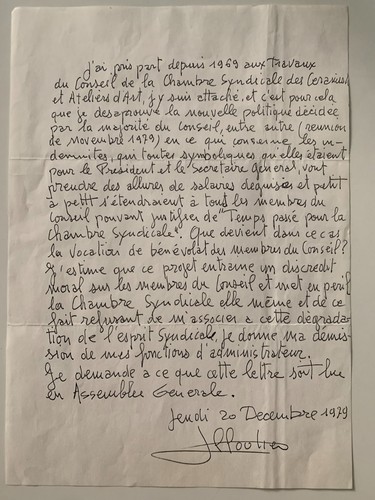 J'ai pris part depuis 1969 aux Travaux
du Conseil de la Chambre Syndicale des
et Ateliers d'Art, j'y suis attaché, et c'est pour cela
que je desaprouve la nouvelle politique décidée
par la majorité du conseil, entre autre (reunion
de novembre 1979) en ce qui concerne les in-
demnites, qui toutes symboliques qu'elles étaient
pour le Président et le Secrétaire Général, vont
prendre des allures de salaires deguisés et petit
à petit s'étendraient à tous les membres du
Conseil pouvant justifier de "Temps passé pour la
Chambre Syndicale". Que devient dans ce cas
la vocation de bénévolat des membres du Conseil?
J'estime que ce projet entraine un discredit
moral sur les membres du Conseil et met en peril
la Chambre Syndicale elle même et de ce
fait refusant de m'associer a cette dégrada-
tion de l'esprit Syndicale, je donne ma démis-
sion de mes fonctions d'administrateur.
Je demande a ce que cette lettre soit lue
en Assemblée Generale.
Jeudi 20 Decembre 1979